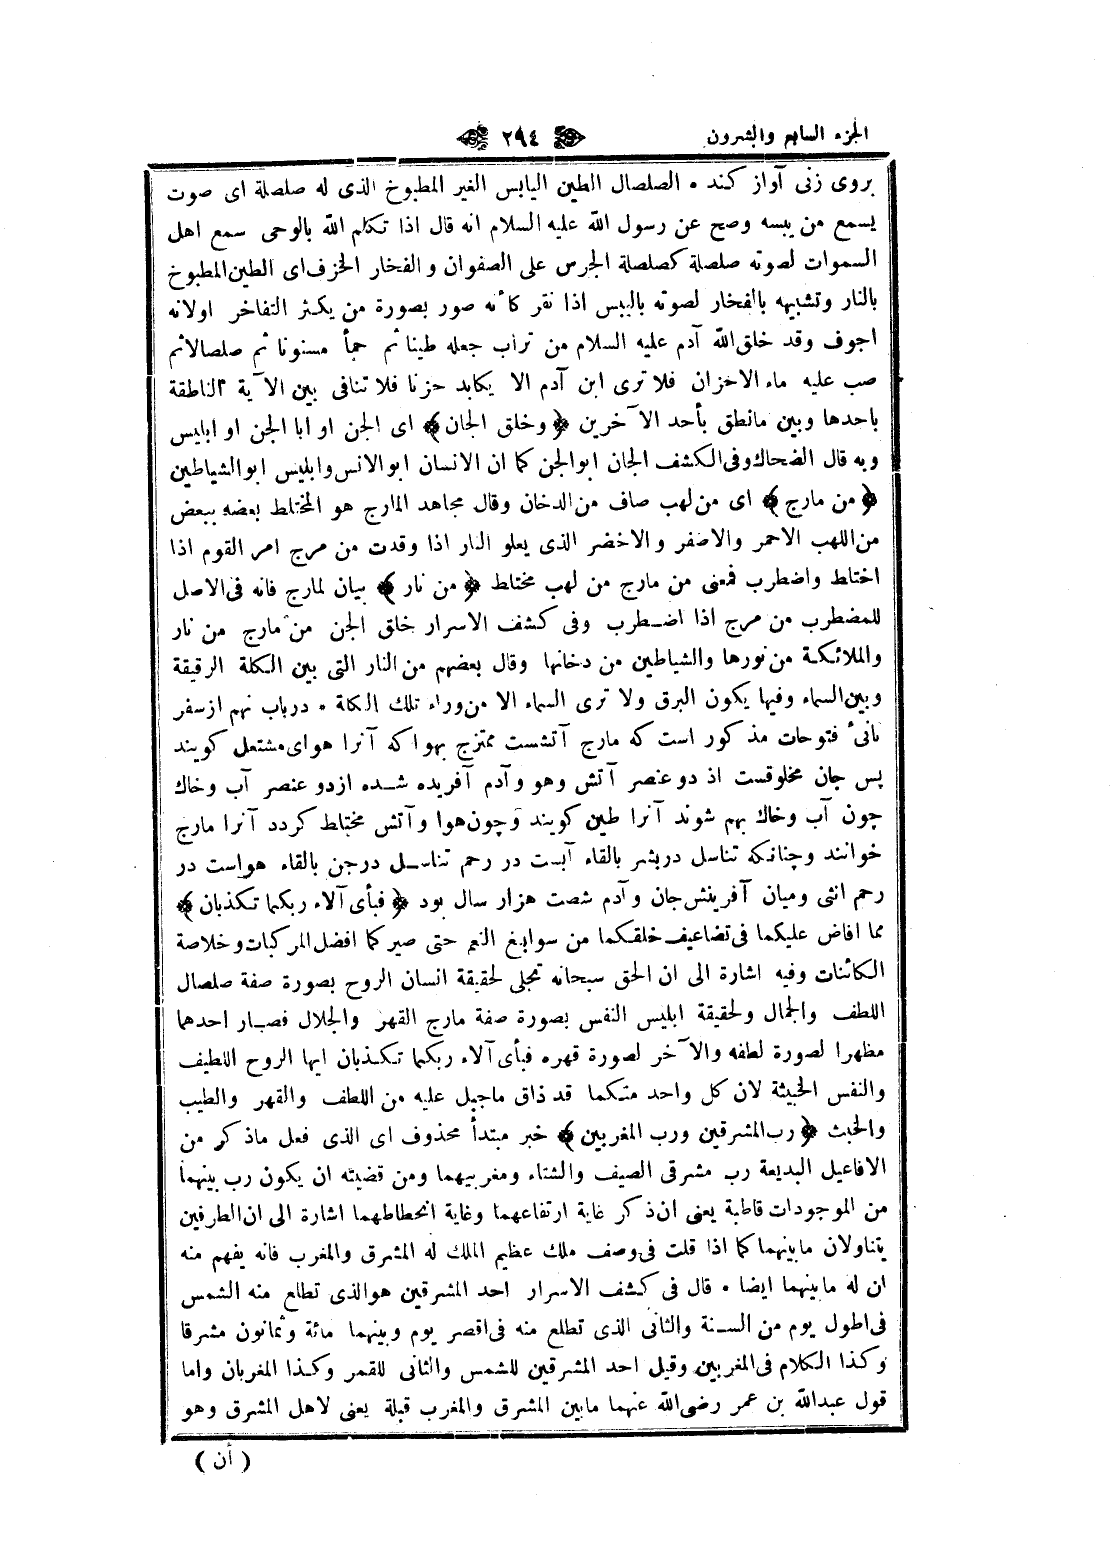 الجزء السابع والعشرون
٢٩٤
بروى زنى آواز كند * الصلصال الطين اليابس الغير المطبوخ الذى له صلصلة اى صوت
يسمع من يبسه وصح عن رسول الله عليه السلام انه قال اذا تكلم الله بالوحى سمع اهل
السموات لصوته صلصلة كصلصلة الجرس على الصفوان والفخار الخزف اى الطين المطبوخ
بالنار وتشبيهه بالفخار لصوته باليبس اذا نقر كأنه صور بصورة من يكثر التفاخر اولانه
اجوف وقد خلق الله آدم عليه السلام من تراب جعله طينا ثم حمأ مسنونا ثم صلصالا ثم
صب عليه ماء الاحزان فلا ترى ابن آدم الا يكابد حزنا فلا تنافى بين الآية الناطقة
باحدها وبين مانطق بأحد الآخرين ﴿ وخلق الجان ﴾ اى الجن او ابا الجن او ابليس
وبه قال الضحاك وفى الكشف الجان ابوالجن كما ان الانسان ابوالانس وابليس ابوالشياطين
﴿ من مارج ﴾ اى من لهب صاف من الدخان وقال مجاهد المارج هو المختلط بعضه ببعض
من اللهب الاحمر والاصفر والاخضر الذى يعلو النار اذا وقدت من مرج امر القوم اذا
اختلط واضطرب فمعنى من مارج من لهب مختلط ﴿ من نار ﴾ بيان لمارج فانه فى الاصل
للمضطرب من مرج اذا اضطرب وفى كشف الاسرار خلق الجن من مارج من نار
والملائكة من نورها والشياطين من دخانها وقال بعضهم من النار التى بين الكلة الرقيقة
وبين السماء وفيها يكون البرق ولا ترى السماء الا من وراء تلك الكلة * درباب نهم ازسفر
ثانىء فتوحات مذكور است كه مارج آتشست ممتزج بهوا كه آنرا هواى مشتعل كويند
پس جان مخلوقست اذ دو عنصر آتش وهو وآدم آفريده شده ازدو عنصر آب وخاك
چون آب وخاك بهم شوند آنرا طين كويند وچون هوا وآتش مختلط كردد آنرا مارج
خوانند وچنانكه تناسل دربشر بالقاء آبست در رحم تناسل درجن بالقاء هواست در
رحم انثى وميان آفرينش جان وآدم شصت هزار سال بود ﴿ فبأى آلاء ربكما تكذبان ﴾
مما افاض عليكما فى تضاعيف خلقكما من سوابغ النعم حتى صيركما افضل المركبات وخلاصة
الكائنات وفيه اشارة الى ان الحق سبحانه تجلى لحقيقة انسان الروح بصورة صفة صلصال
اللطف والجمال ولحقيقة ابليس النفس بصورة صفة مارج القهر والجلال فصار احدهما
مظهرا لصورة لطفه والآخر لصورة قهره فبأى آلاء ربكما تكذبان ايها الروح اللطيف
والنفس الخبيثة لان كل واحد منكما قد ذاق ماجبل عليه من اللطف والقهر والطيب
والخبث ﴿ رب المشرقين ورب المغربين ﴾ خبر مبتدأ محذوف اى الذى فعل ماذكر من
الافاعيل البديعة رب مشرقى الصيف والشتاء ومغربيهما ومن قضيته ان يكون رب بينهما
من الموجودات قاطبة يعنى ان ذكر غاية ارتفاعهما وغاية انحطاطهما اشارة الى ان الطرفين
يتناولان مابينهما كما اذا قلت فى وصف ملك عظيم الملك له المشرق والمغرب فانه يفهم منه
ان له مابينهما ايضا * قال فى كشف الاسرار احد المشرقين هوالذى تطلع منه الشمس
فى اطول يوم من السنة والثانى الذى تطلع منه فى اقصر يوم وبينهما مائة وثمانون مشرقا
وكذا الكلام فى المغربين وقيل احد المشرقين للشمس والثانى للقمر وكذا المغربان واما
قول عبدالله بن عمر رضى الله عنهما مابين المشرق والمغرب قبلة يعنى لاهل المشرق وهو
( أن )